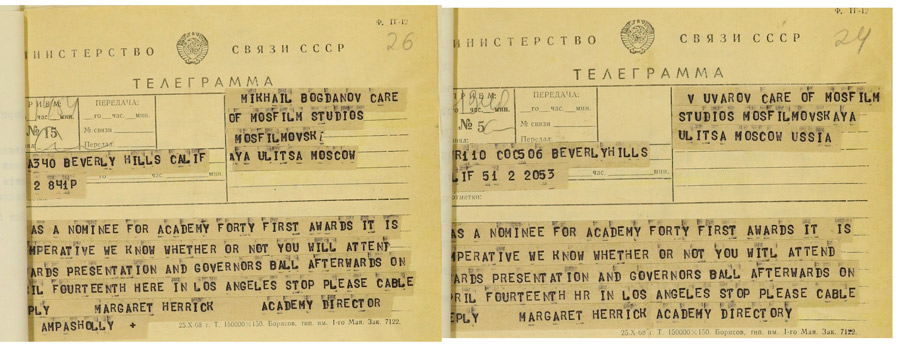 Ф. ТГ-12
26
НИСТЕРСТВО СВЯЗИ СССР
ТЕЛЕГРАММА
ПЕРЕДАЧА:
го час. мин.
№ 15
№ связи
Передал
MIKHAIL BOGDANOV CARE
OF MOSFILM STUDIOS
MOSFILMOVSKI
AYA ULITSA MOSCOW
A340 BEVERLY HILLS CALIF
2 841P
го час. мин.
AS A NOMINEE FOR ACADEMY FORTY FIRST AWARDS IT IS
MPERATIVE WE KNOW WHETHER OR NOT YOU WILL ATTEND
ARDS PRESENTATION AND GOVERNORS BALL AFTERWARDS ON
RIL FOURTEENTH HERE IN LOS ANGELES STOP PLEASE CABLE
PLY MARGARET HERRICK ACADEMY DIRECTOR
AMPASHOLLY +
25.X-68 г. Т. 150000×150. Борисов, тип. им. 1-го Мая. Зак. 7122.
Ф. ТГ-12
24
НИСТЕРСТВО СВЯЗИ СССР
ТЕЛЕГРАММА
ПЕРЕДАЧА:
го час. мин.
№ 5
№ связи
Передал
V UVAROV CARE OF MOSFILM
STUDIOS MOSFILMOVSKAYA
ULITSA MOSCOW USSIA
R110 COC506 BEVERLYHILLS
LIF 51 2 2053
час. мин.
отметки:
AS A NOMINEE FOR ACADEMY FORTY FIRST AWARDS IT IS
MPERATIVE WE KNOW WHETHER OR NOT YOU WITL ATTEND
ARDS PRESENTATION AND GOVERNORS BALL AFTERWARDS ON
RIL FOURTEENTH HR IN LOS ANGELES STOP PLEASE CABLE
EPLY MARGARET HERRICK ACADEMY DIRECTORY
25.X-68 г. Т. 150000×150. Борисов, тип. им. 1-го Мая. Зак. 7122.